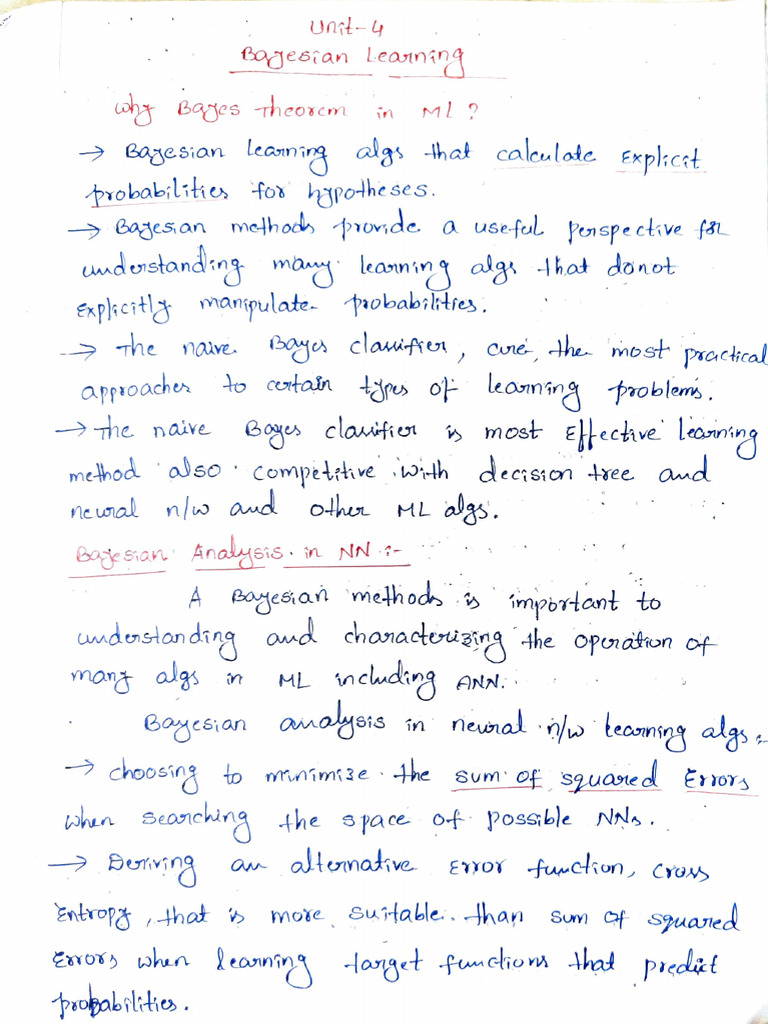 Unit-4
Bayesian Learning
Why Bayes Theorem in ML?
→ Bayesian learning algs that calculate Explicit
probabilities for hypotheses.
→ Bayesian methods provide a useful perspective for
understanding many learning algs that donot
Explicitly manipulate probabilities.
→ The naive Bayes classifier, are, the most practical
approaches to certain types of learning problems.
→ The naive Bayes classifier is most Effective learning
method also competitive with decision tree and
neural n/w and other ML algs.
Bayesian Analysis in NN :-
A Bayesian methods is important to
understanding and characterizing the operation of
many algs in ML including ANN.
Bayesian analysis in neural n/w learning algs :-
→ choosing to minimize the sum of squared Errors
when searching the space of possible NNs.
→ Deriving an alternative Error function, cross
Entropy, that is more suitable than sum of squared
Errors when learning target functions that predict
probabilities.